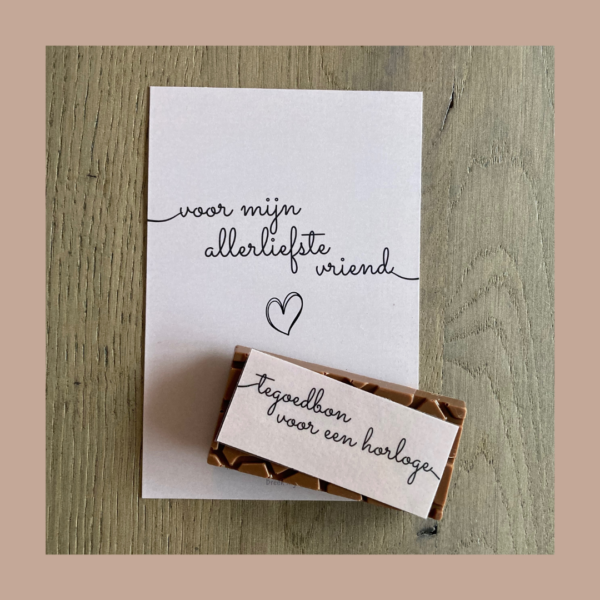 voor mijn
allerliefste
vriend
tegoedbon
voor een horloge